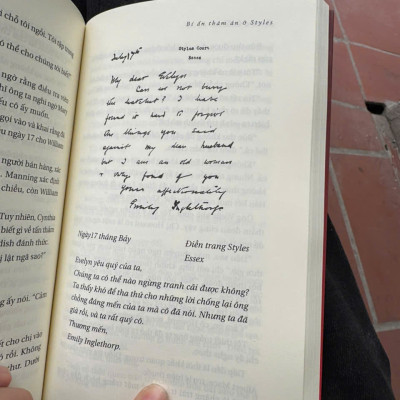 chỗ tôi ngồi. Tòa tập trung
thể cho chúng tôi biết?"
ngờ rằng điều tra viên
hỉ ông ta nghi ngờ Mary
cô ấy muốn.
gọi vào và khai rằng đã
ngày 17 cho William
người bán hàng, xác
Manning xác định
chiều, còn William
Tuy nhiên, Cynthia
biết gì về tấn thảm
dish đánh thức
lật ngã sao?"
ng ấy nói. "Cảm
kết cho chị vào
rồi. Không
thư. Dưới
Bí ẩn thảm án ở Styles
Styles Court
Essex
July 17th
My dear Evelyn
Can we not bury
the hatchet? I have
found it hard to forgive
the things you said
against my dear husband
but I am an old woman
& very fond of you
Yours affectionately
Emily Inglethorpe
Ngày 17 tháng Bảy
Điền trang Styles
Essex
Evelyn yêu quý của ta,
Chúng ta có thể nào ngừng tranh cãi được không?
Ta thấy khó để tha thứ cho những lời chống lại ông
chồng đáng mến của ta mà cô đã nói. Nhưng ta đã
già rồi, và ta rất quý cô.
Thương mến,
Emily Inglethorp.